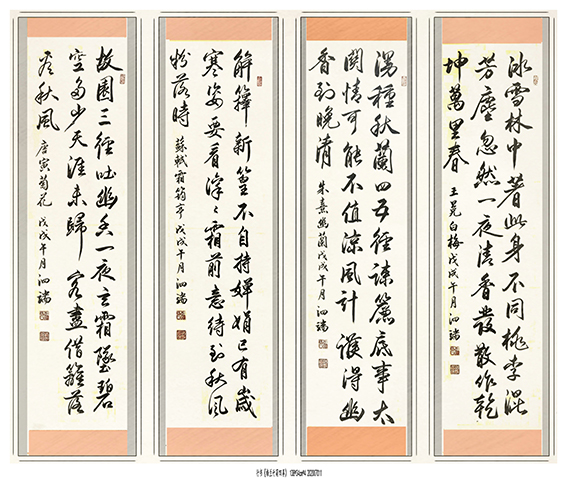 冰雪林中著此身不同桃李混
芳塵忽然一夜清香發散作乾
坤萬里春 王冕白梅戊戌午月泗端
漫種秋蘭四五徑疎簾底事太
關情可能不值涼風計護得幽
香到晚清 朱熹幽蘭戊戌午月泗端
解籜新篁不自持嬋娟已有歲
寒姿要看凜〻霜前意待到秋風
粉落時 蘇軾霜筠亭戊戌午月泗端
故園三徑吐幽叢一夜玄霜墜碧
空多少天涯未歸客盡借籬落
看秋風 唐寅菊花 戊戌午月泗端